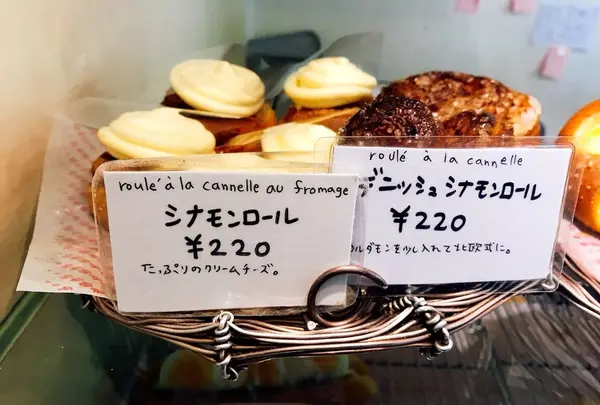 roulé à la cannelle au fromage
シナモンロール
¥220
たっぷりのクリームチーズ。
roulé à la cannelle
デニッシュシナモンロール
¥220
ルダモンを少し入れて北欧式に。